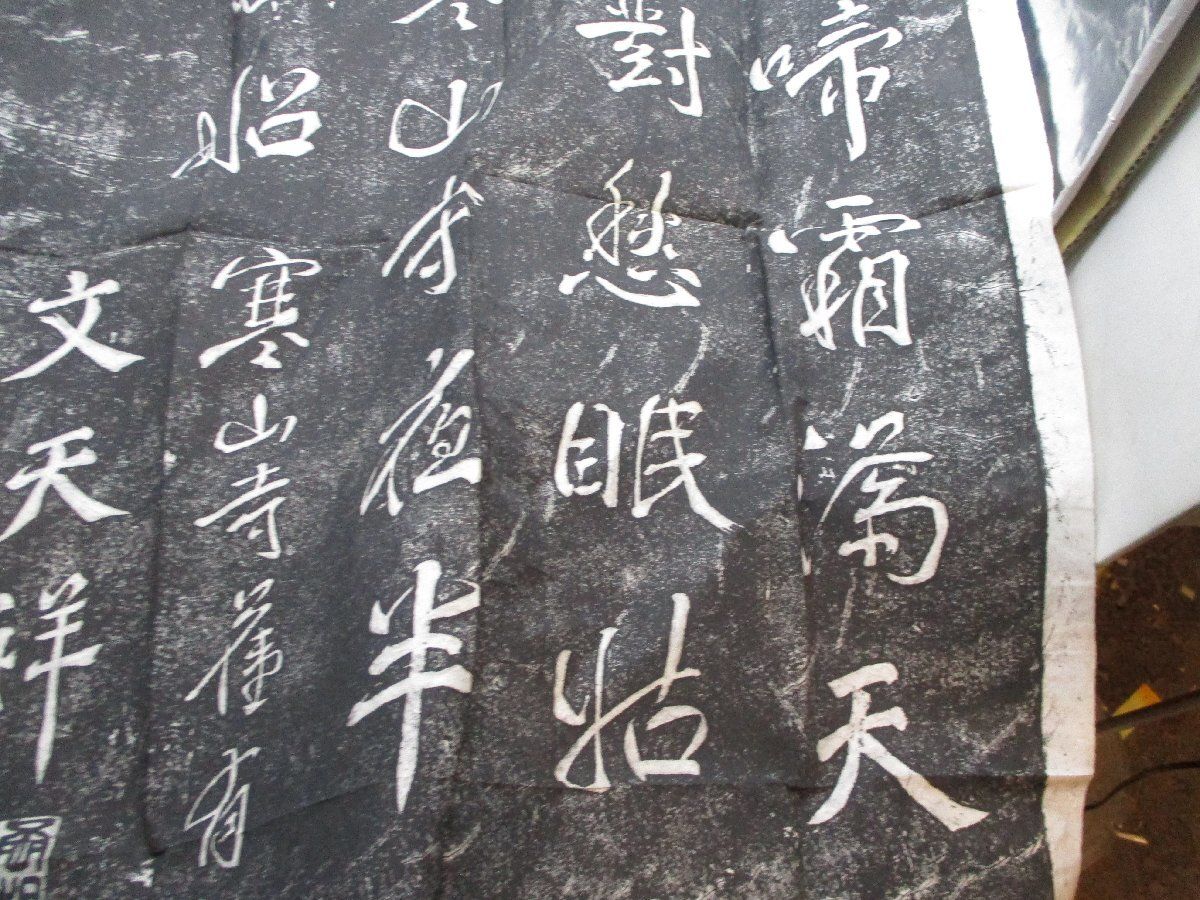 啼霜滿天
對愁眠姑
寒山寺夜半
船
寒山寺舊有
文天祥